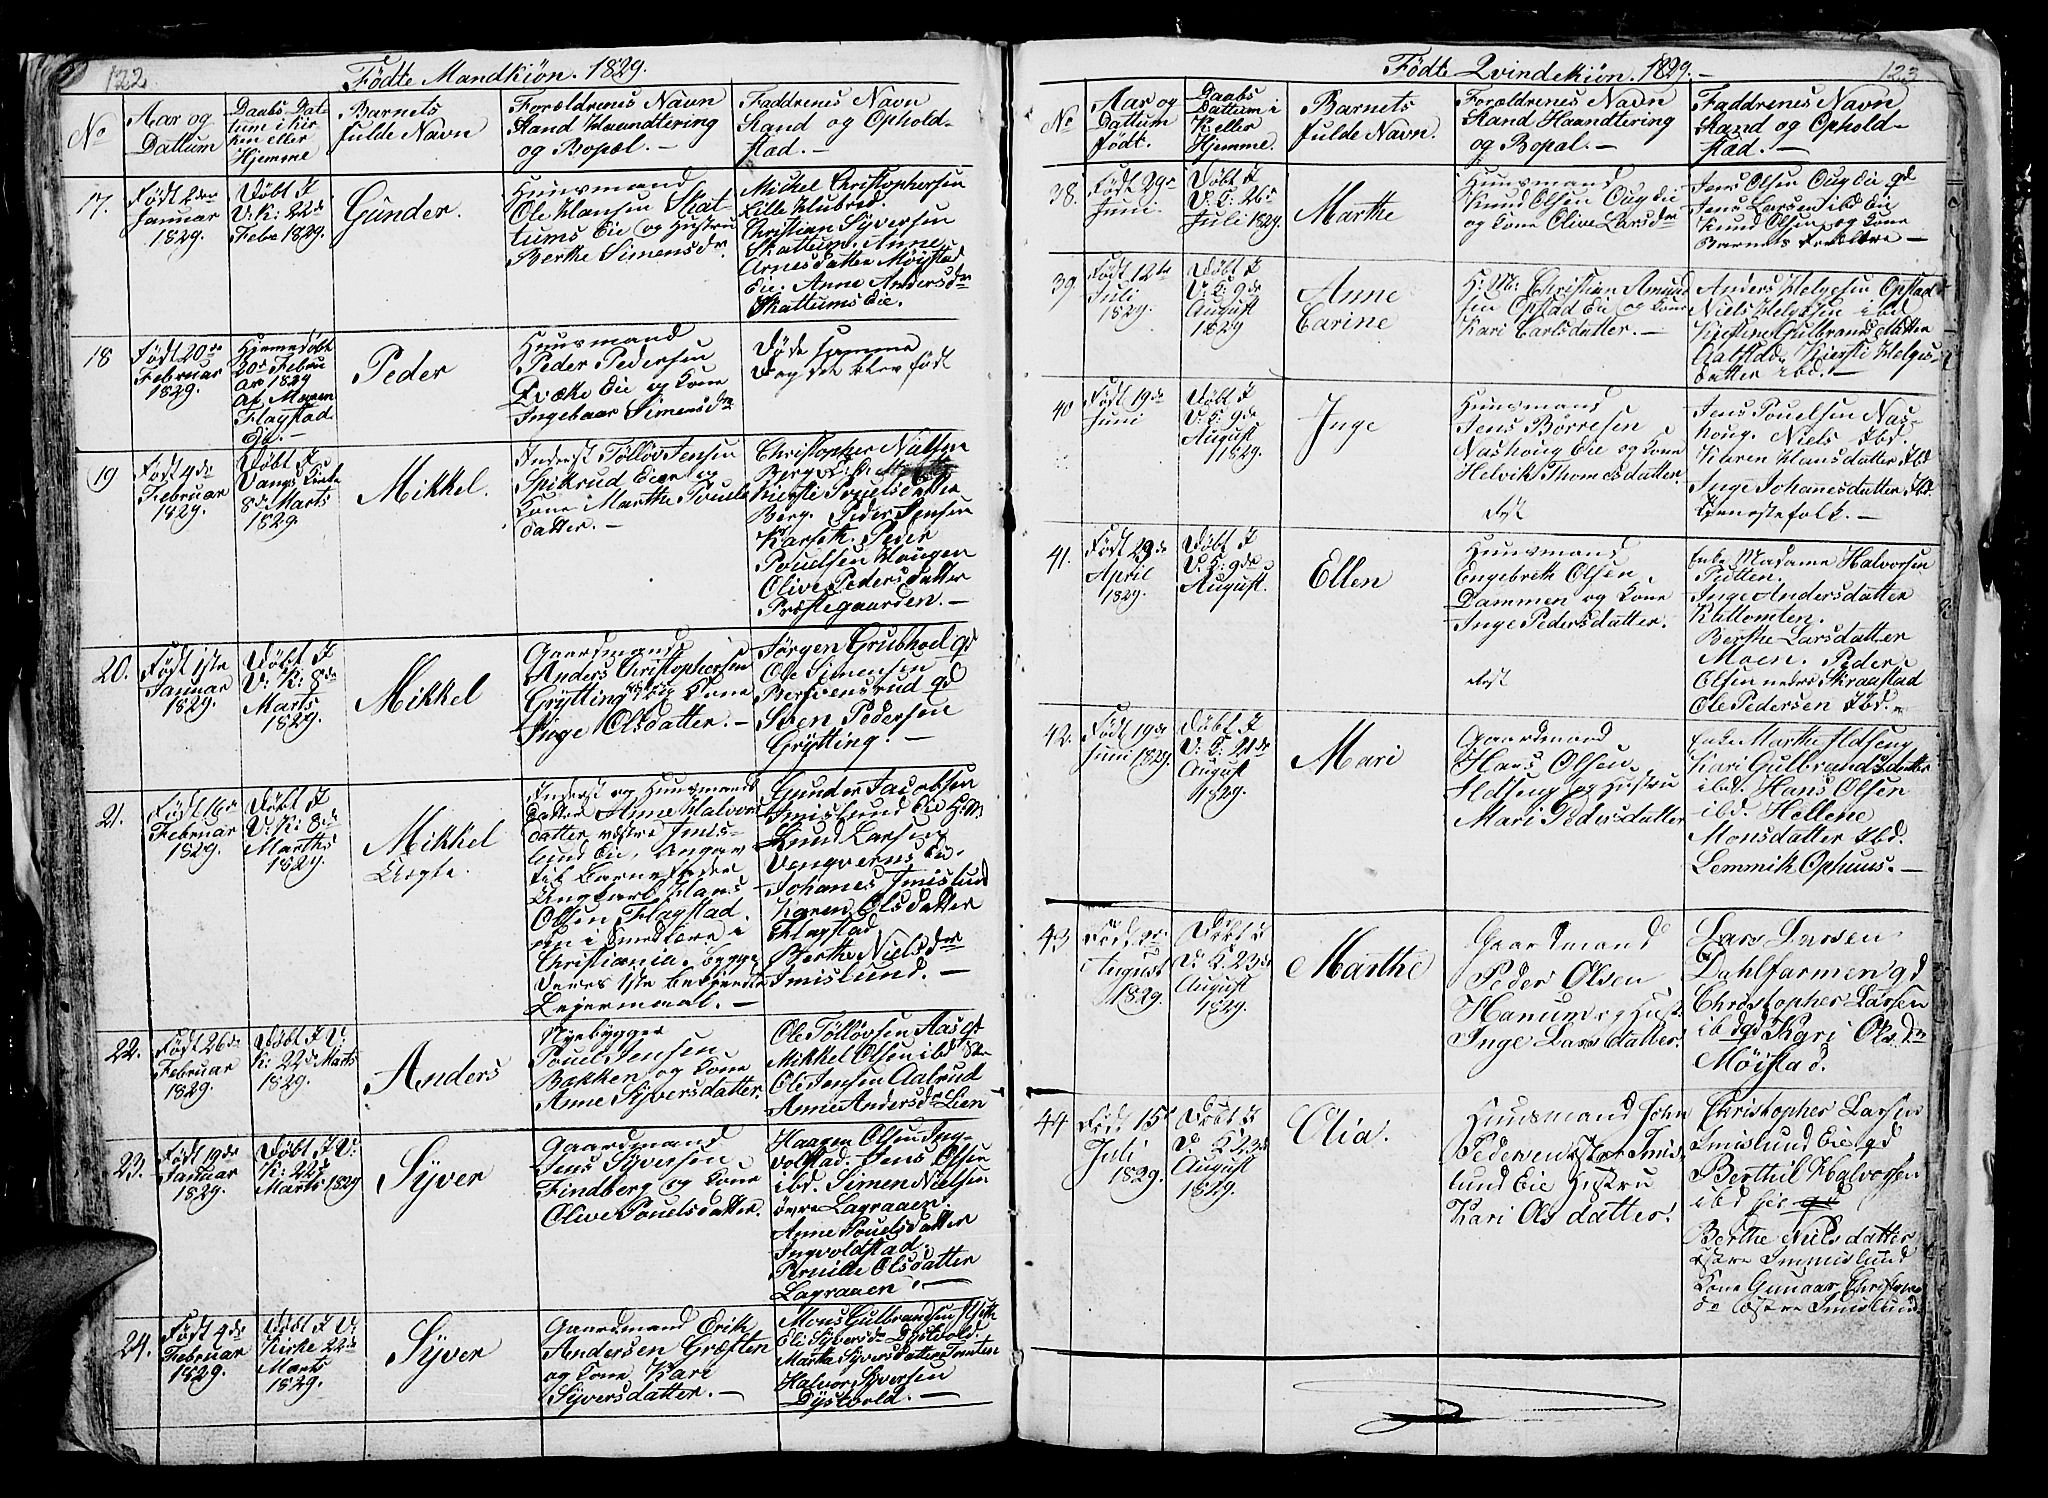 122
Fødte Mandkiøn. 1829.
No
Aar og
Dattum
Daabs Dat-
tum i Kir
ken eller
Hjemme
Barnets
fulde Navn
Forældrenes Navn
Stand Haandtering
og Bopæl. —
Faddrenes Navn
Stand og Ophold-
stad. —
17.
Født 2den
Januar
1829.
Døbt I
V: K: 22de
Febr 1829.
Gunder.
Huusmand
Ole Hansen Skat-
tums Eie og Hustru
Berthe Simensdr
Mickel Christophersen
Lille Hubred.
Christian Syversen
Skattum. Anne
Arnesdatter Møystad
Eie. Anne Andersdr
Skattums Eie.
18
Født 20de
Februar
1829.
Hjemmedøbt
20de Febru
ar 1829
Af Maren
Flagstad
Eie. —
Peder
Huusmand
Peder Pedersen
Qvæke Eie og Kone
Ingebaar Simensdr
Døde samme
Dag det blev født
19
Født 4de
Februar
1829.
Døbt I
Vangs Kirke
8de Marts
1829.
Mikkel.
Inderst Tølløv Jensen
Spikrud Eie og
Kone Marthe Pouels
datter. —
Christopher Nielsen
Berg
Kiersti Pouelsdatter
Berg. Peder Jensen
Karset. Peder
Pouelsen Haugen
Olive Pedersdatter
Præstegaarden. —
20.
Født 1ste
Januar
1829.
Døbt I
V: K: 8de
Marts
1829.
Mikkel
Gaardmand
Anders Christophersen
Grytting og Kone
Inge Olsdatter. —
Jørgen Grubhoel gd
Ole Simensen
Berfvensrud gd
Sven Pedersen
Grytting. —
21.
Født 16de
Februar
1829.
Døbt I
V: K: 8de
Marths
1829.
Mikkel
Uægte.
Inderst og Huusmands
datter Anne Halvors
datter vestre Imis-
lund Eie, Angav
til Barnefader
Ungkarl Hans
Olsen Flagstad.
i Smedlære i
Christiania. begge
deres 1ste bekjendte
Leiermaal. —
Gunder Jacobsen
Imislund Eie
Knud Larsen
Vengverns Eie.
Johanes Imislund
Karen Olsdatter
Flagstad
Berthe Nielsdr
Imislund. —
22.
Født 26de
Februar
1829.
Døbt I V:
K: 22de Marts
1829.
Anders
Nyebygger
Pouel Jensen
Bakken og Kone
Anne Syversdatter.
Ole Tølløvsen Aas gt
Mikkel Olsen ibd
Ole Jensen Aalrud
Anne Andersdr Lien
23.
Født 19de
Januar
1829.
Døbt I V:
K: 22de
Marts 1829
Syver
Gaardmand
Jens Syversen
Findberg og Kone
Olive Pouelsdatter.
Haagen Olsen Ing-
volstad. Jens Olsen
ibd. Simen Nielsen
øvre Lagraaen.
Anne Pouelsdatter
Ingvoldstad.
Pernille Olsdatter
Lagraaen. —
24.
Født 4de
Februar
1829.
Døbt I V:
Kirke 22de
Marts
1829.
Syver
Gaardmand Erik
Andersen Græften
og Kone Kari
Syversdatter. —
Mons Gulbrandsen
Eli Syversdr Dystvold.
Martha Syversdatter Tomten
Halvor Syversen
Dystvold. —
Fødte Qvindekiøn. 1829. —
123
No
Aar og
Dattum
født.
Daabs
Dattum i
K: eller
Hjemme.
Barnets
fulde Navn.
Forældrenes Navn
Stand Haandtering
og Bopæl. —
Faddrenes Navn
Stand og Ophold-
stad. —
38.
Født 29de
Juni
Døbt I
V: K: 26de
Juli 1829.
Marthe
Huusmand
Knud Olsen Oug Eie
og Kone Olive Larsdr
Jens Olsen Oug Eie gd
Jens Larsen ibd Eie
Knud Olsen og Kone
Barnets Forældre —
39
Født 12te
Juli
1829.
Døbt I
V: K: 9de
August
1829
Anne
Carine
H: M: Christian Amund
sen Opstad Eie og Kone
Kari Carlsdatter. —
Anders Helgesen Opstad
Niels Helgesen ibd
Kirstine Gulbrandsdatter
Aalstad. Kiersti Helges-
datter ibd. —
40
Født 19de
Juni
Døbt I
V: K: 9de
August
1829.
Inge
Huusmand
Jens Børresen
Nashoug Eie og Kone
Helvik Thomesdatter.
Jens Pouelsen Nas-
houg. Niels Ibd.
Karen Hansdatter Ibd
Inge Johanesdatter Ibd.
Tjenestefolk. —
41.
Født 23de
April
1829.
Døbt I
V: K: 9de
August.
Ellen
Huusmand
Engebreth Olsen
Dammen og Kone
Inge Pedersdatter.
Enke Madame Halvorsen
Putten.
Inge Andersdatter
Kattomten.
Berthe Larsdatter
Moen. Peder
Olsen nedre Skraastad
Ole Pedersen Ibd. —
42.
Født 19de
Juni 1829.
Døbt I
V: K: 21de
August
1829.
Mari
Gaardmand
Hans Olsen
Ildseng og Hustru
Mari Pedersdatter
Enke Marthe Ildseng
Kari Gulbrandsdatter
ibd. Hans Olsen
ibd. Hellene
Monsdatter Ibd.
Lemmik Ophuus. —
43
Født
August
1829.
Døbt i
V: K. 23de
August
1829.
Marthe
Gaardmand
Peder Olsen
Hanum og Hust.
Inge Larsdatter.
Lars Larsen
Dahlfarmen gd
Christopher Larsen
ibd gd Kari Olsdr
Møistad.
44
Født 15de
Juli
1829.
Døbt i
V. K 23de
August
1829.
Olia.
Huusmand John
Pedersen Imis
lund Eie Hustru
Kari Olsdatter.
Christopher Larsen
Imislund Eie gd
Berthil Halvorsen
ibd Eie
Berthe Nielsdatter
østre Immislund
Kone Gunar Christophers
dr østre Imislund